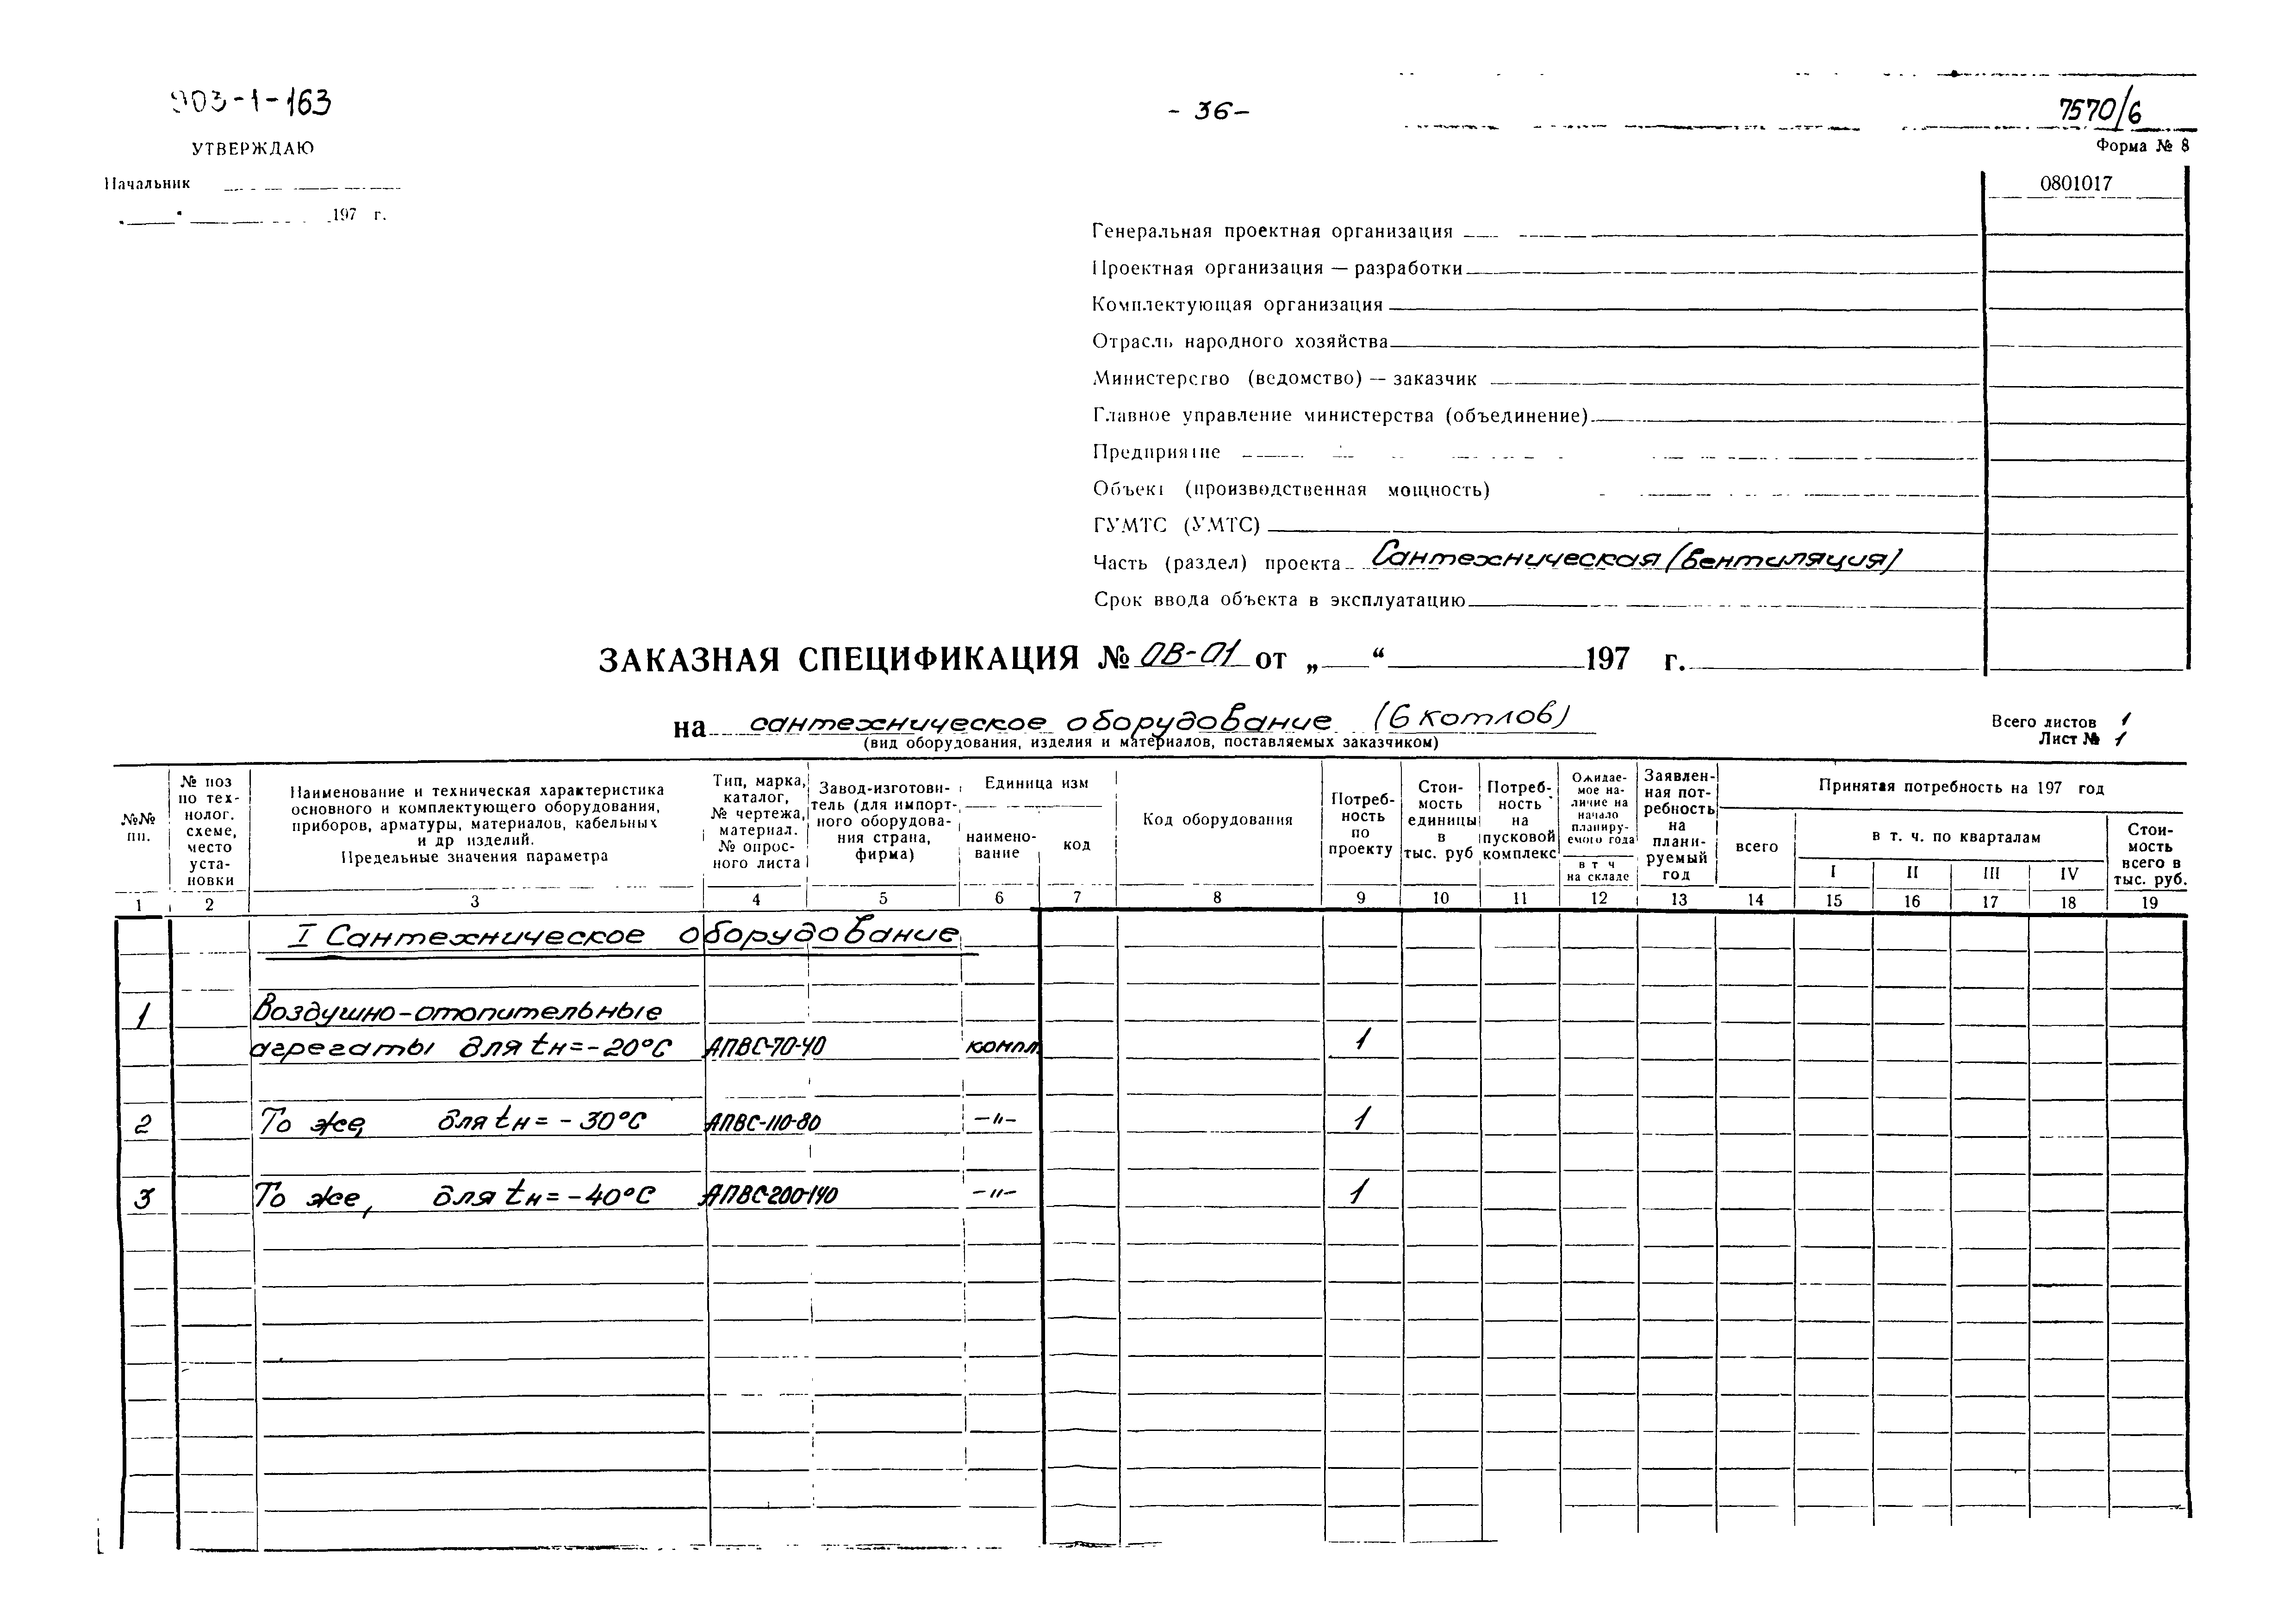 903-1-163
- 36 -
7570/6
УТВЕРЖДАЮ
Форма № 8
Начальник
0801017
„ “ 197 г.
Генеральная проектная организация
Проектная организация — разработки
Комплектующая организация
Отрасль народного хозяйства
Министерство (ведомство) — заказчик
Главное управление министерства (объединение)
Предприятие
Объект (производственная мощность)
ГУМТС (УМТС)
Часть (раздел) проекта Сантехническая (вентиляция)
Срок ввода объекта в эксплуатацию
ЗАКАЗНАЯ СПЕЦИФИКАЦИЯ № ОВ-01 от „ “ 197 г.
на сантехническое оборудование (6 котлов)
(вид оборудования, изделия и материалов, поставляемых заказчиком)
Всего листов 1
Лист № 1
№№
пп.
№ поз
по тех-
нолог.
схеме,
место
уста-
новки
Наименование и техническая характеристика
основного и комплектующего оборудования,
приборов, арматуры, материалов, кабельных
и др изделий.
Предельные значения параметра
Тип, марка,
каталог,
№ чертежа,
материал.
№ опрос-
ного листа
Завод-изготови-
тель (для импорт-
ного оборудова-
ния страна,
фирма)
Единица изм
наимено-
вание
код
Код оборудования
Потреб-
ность
по
проекту
Стои-
мость
единицы
в
тыс. руб
Потреб-
ность
на
пусковой
комплекс
Ожидае-
мое на-
личие на
начало
планиру-
емого года
в т ч
на складе
Заявлен-
ная пот-
ребность
на
плани-
руемый
год
Принятая потребность на 197 год
всего
в т. ч. по кварталам
I II III IV
Стои-
мость
всего в
тыс. руб.
1 2 3 4 5 6 7 8 9 10 11 12 13 14 15 16 17 18 19
I Сантехническое оборудование
1 Воздушно-отопительные
агрегаты для tн=-20°С АПВС-70-40 компл. 1
2 То же, для tн=-30°С АПВС-110-80 -"- 1
3 То же, для tн=-40°С АПВС-200-140 -"- 1